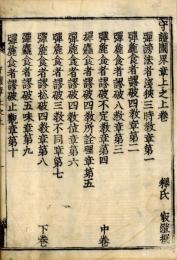 守護國界章上之上卷
釋氏 最澂撰
彈謗法者淺狹三時教章第一
彈麁食者謬破四教章第二
彈麁食者謬破八教章第三
彈麁食者謬破不定教章第四
彈麁食者謬破四教所詮理章第五
中卷
彈麁食者謬破四教位章第六
彈麁食者謬破三教不同章第七
彈麁食者謬破四教章第八
彈麁食者謬破五味章第九
彈麁食者謬破止觀章第十
下卷